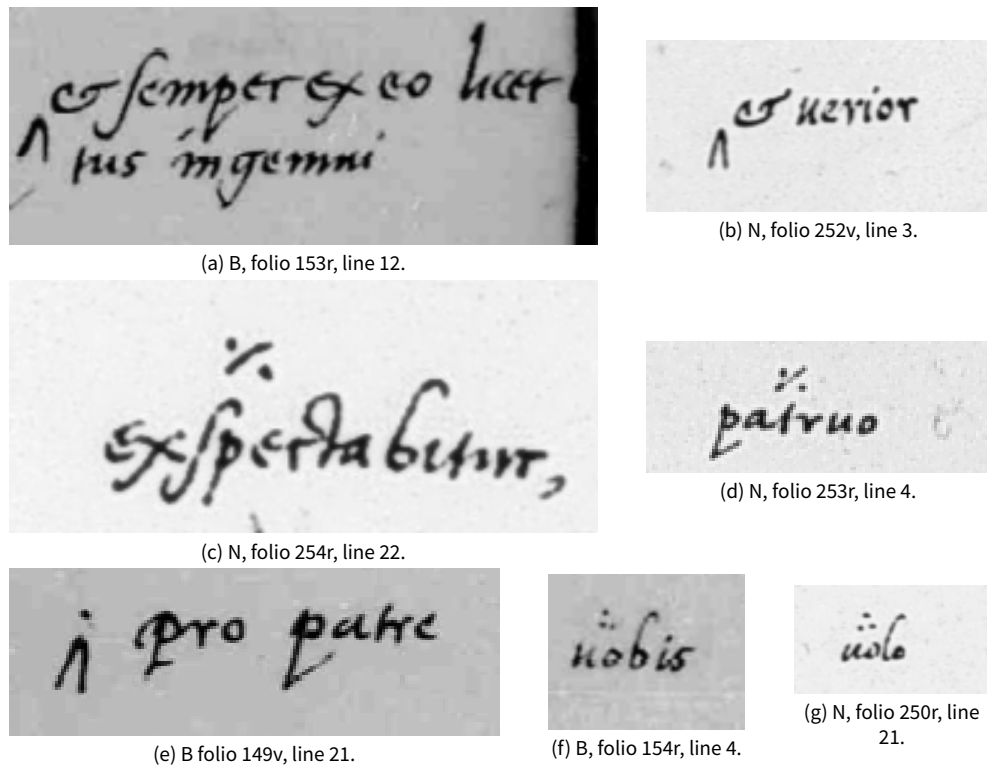 & semper ex eo licet
tus ingemui
(a) B, folio 153r, line 12.
& uerior
(b) N, folio 252v, line 3.
exspectabitur,
(c) N, folio 254r, line 22.
patruo
(d) N, folio 253r, line 4.
pro patre
(e) B folio 149v, line 21.
uobis
(f) B, folio 154r, line 4.
uolo
(g) N, folio 250r, line
21.